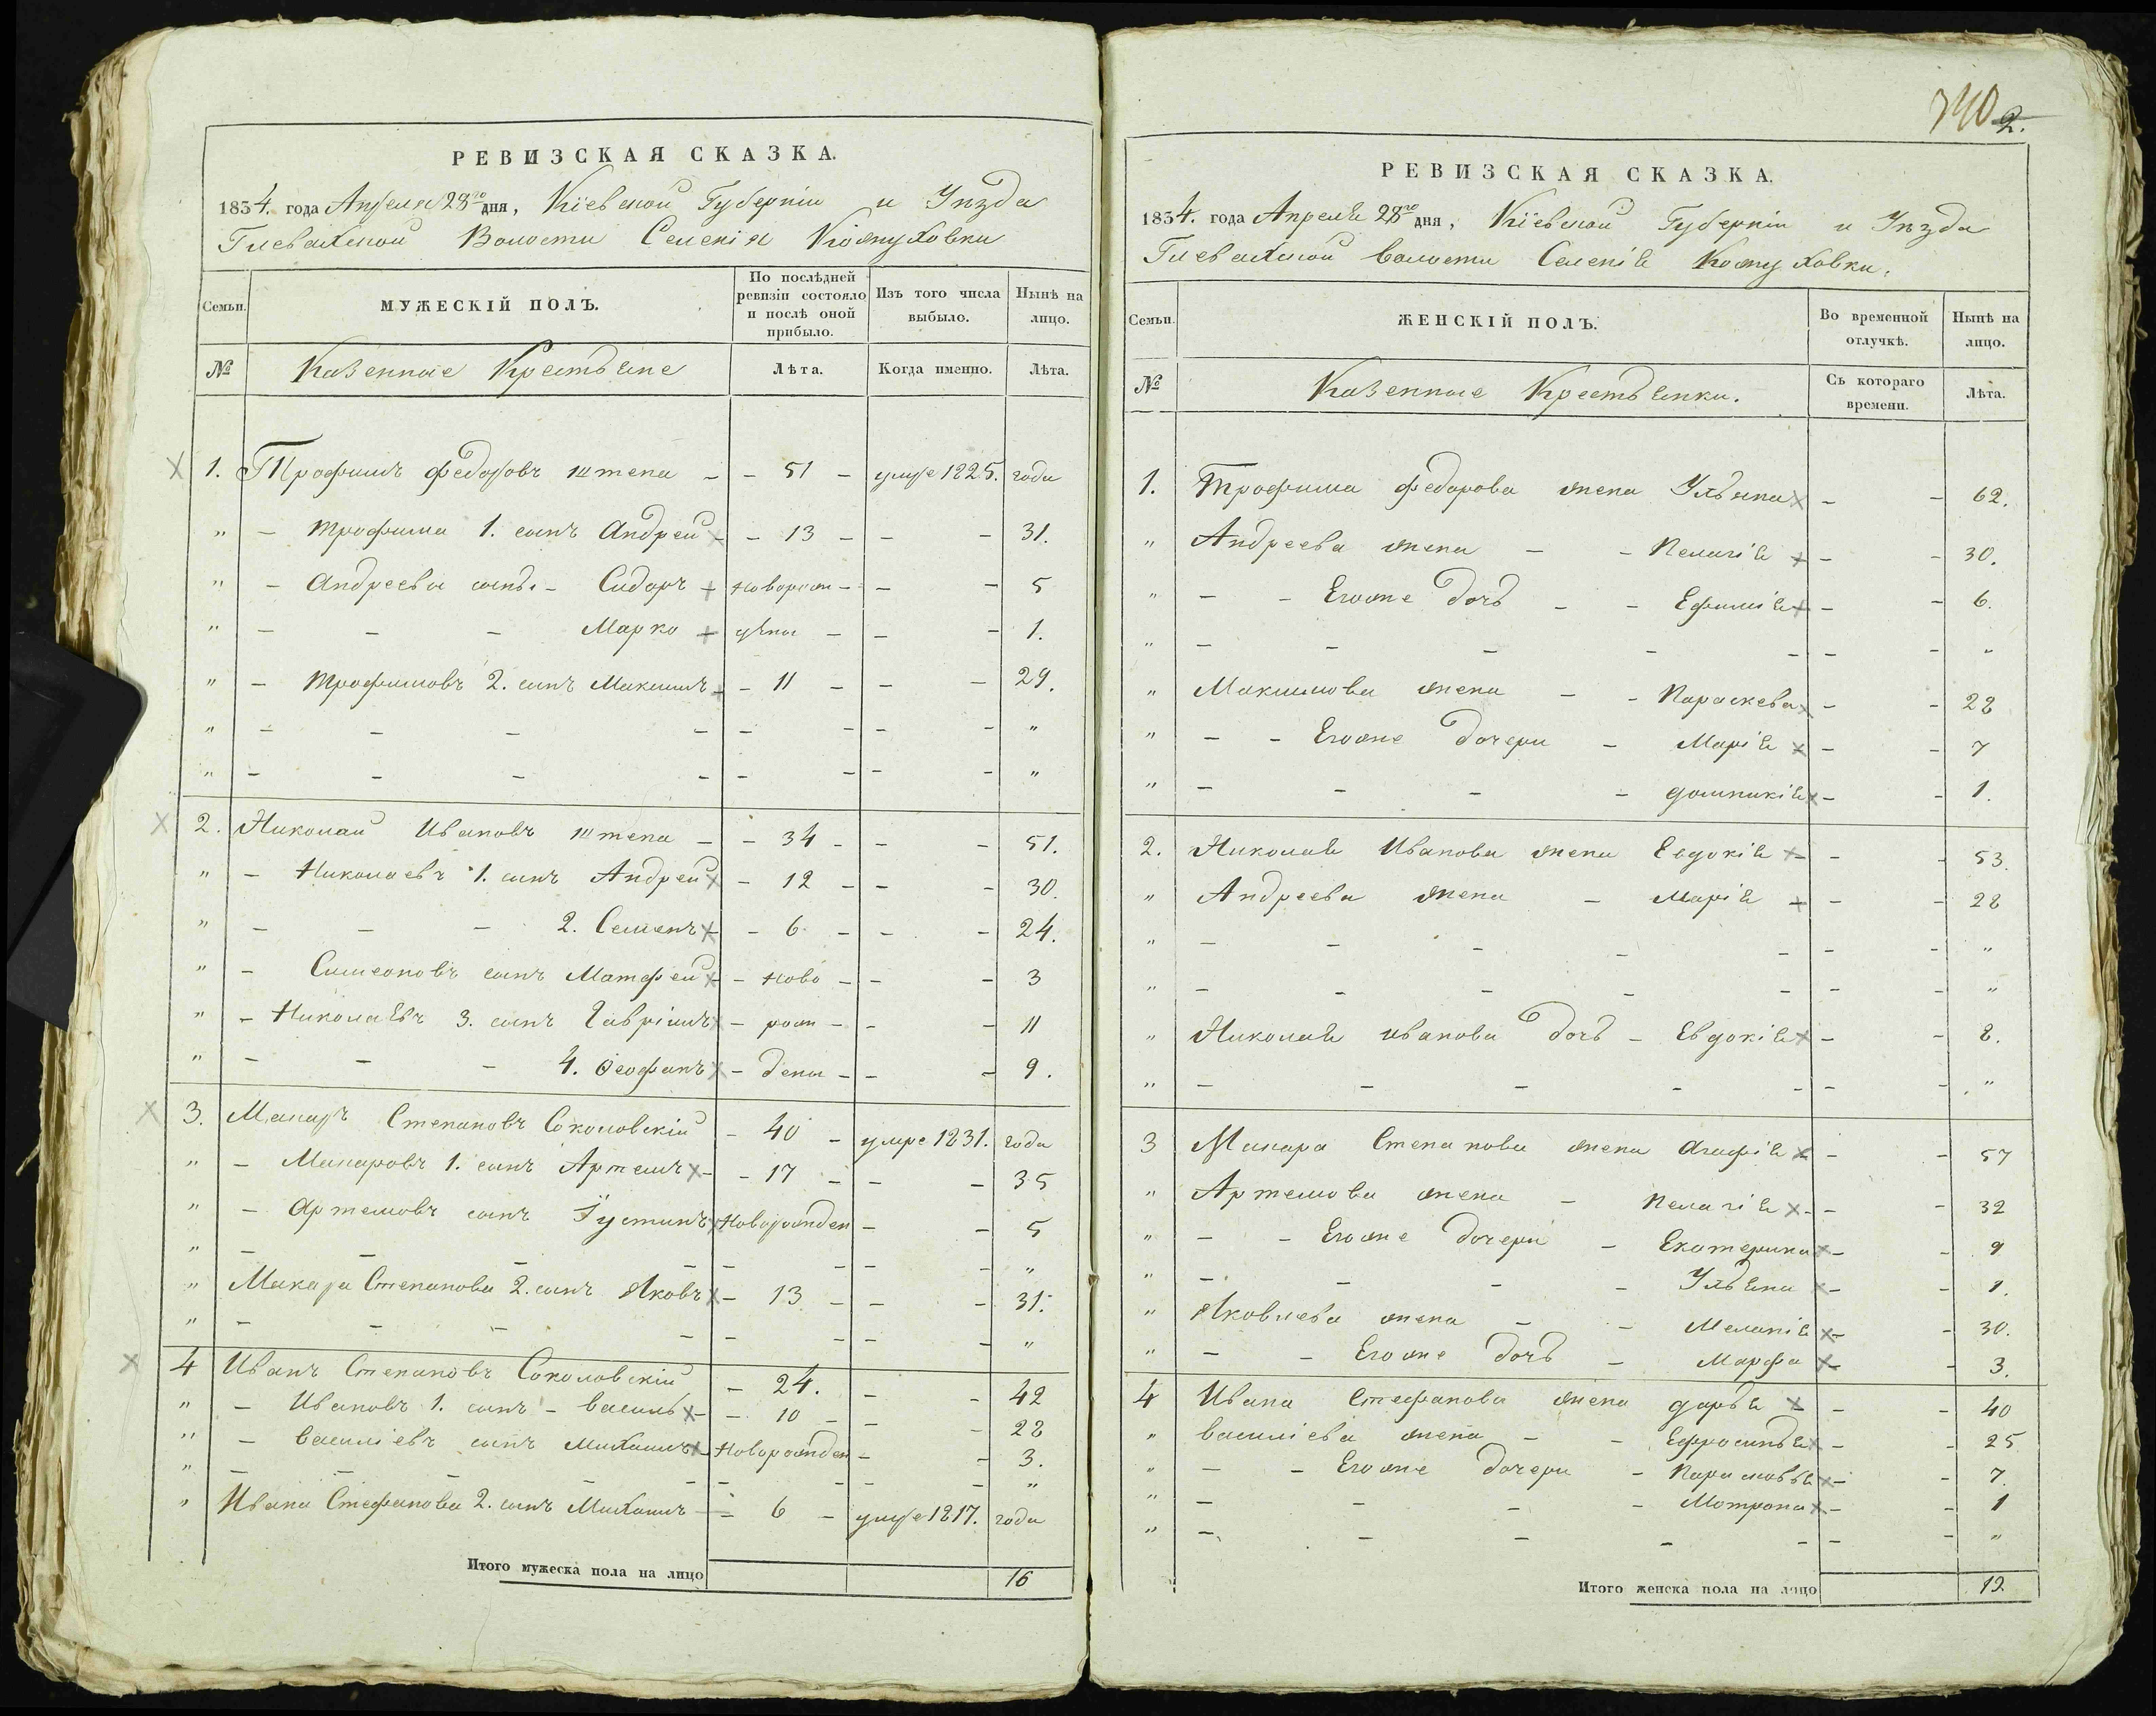 РЕВИЗСКАЯ СКАЗКА.
1834. года Апреля 28го дня, Кіевской Губерніи и Уѣзда
Глевахской Волости Селенія Кожуховки
Семьи. МУЖЕСКІЙ ПОЛЪ. По послѣдней ревизіи состояло и послѣ оной прибыло. Изъ того числа выбыло. Нынѣ на лицо.
№ Казенные Крестьяне Лѣта. Когда именно. Лѣта.
1. Трофимъ Федоровъ Штепа - - 51 - умре 1825. года
" - Трофима 1. сынъ Андрей - 13 - - - 31.
" - Андреевы сынъ. - Сидоръ новорож - - - 5
" - - - Марко дѣны - - - 1.
" - Трофимовъ 2. сынъ Максимъ - 11 - - - 29.
" - - - - - - - - "
" - - - - - - - - "
2. Николай Ивановъ Штепа - - 34 - - - 51.
" - Николаевъ 1. сынъ Андрей - 12 - - - 30.
" - - - 2. Семенъ - 6 - - - 24.
" - Симеоновъ сынъ Матфей - ново - - - 3
" - Николаевъ 3. сынъ Гавріилъ - рож - - - 11
" - - - 4. Ѳеофанъ - дены - - - 9.
3. Макаръ Степановъ Соколовскій - 40 - умре 1831. года
" - Макаровъ 1. сынъ Артемъ - 17 - - - 35
" - Артемовъ сынъ Іустинъ Новорожден - - 5
" - - - - - - - - "
" Макара Степанова 2. сынъ Яковъ - 13 - - - 31.
" - - - - - - - - "
4 Иванъ Степановъ Соколовскій - 24. - - 42
" - Ивановъ 1. сынъ - Василь - 10 - - - 28
" - Василіевъ сынъ Михаилъ Новорожден - - 3.
" - - - - - - - - "
" Ивана Стефанова 2. сынъ Михаилъ - 6 - умре 1817. года
Итого мужеска пола на лицо 16
740 2.
РЕВИЗСКАЯ СКАЗКА.
1834. года Апреля 28го дня, Кіевской Губерніи и Уѣзда
Глевахской Волости Селенія Кожуховки.
Семьи. ЖЕНСКІЙ ПОЛЪ. Во временной отлучкѣ. Нынѣ на лицо.
№ Казенные Крестьянки. Съ котораго времени. Лѣта.
1. Трофима Федорова жена Ульяна - - 62.
" Андреева жена - - Пелагія - - 30.
" - - Егоже дочь - - Ефимія - - 6.
" - - - - - - - "
" Максимова жена - - Параскева - - 28
" - - Егоже дочери - Марія - - 7
" - - - - Домникія - - 1.
2. Николая Иванова жена Евдокія - - 53.
" Андреева жена - Марія - - 28
" - - - - - - - "
" - - - - - - - "
" Николая Иванова дочь - Евдокія - - 8.
" - - - - - - - "
3 Макара Степанова жена Агафія - - 57
" Артемова жена - Пелагія - - 32
" - - Егоже дочери - Екатерина - - 9
" - - - - Ульяна - - 1.
" Яковлева жена - - Меланія - - 30.
" - - Егоже дочь - Марфа - - 3.
4 Ивана Стефанова жена Дарья - - 40
" Василіева жена - - Ефросинья - - 25
" - - Егоже дочери - - - 7.
" - - - - Мотрона - - 1
" - - - - - - - "
Итого женска пола на лицо 19